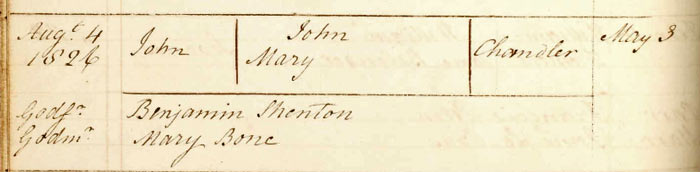 Augt 4 John May 3
1826 John Mary Chandler
Godfr. Benjamin Shenton
Godmr. Mary Bone